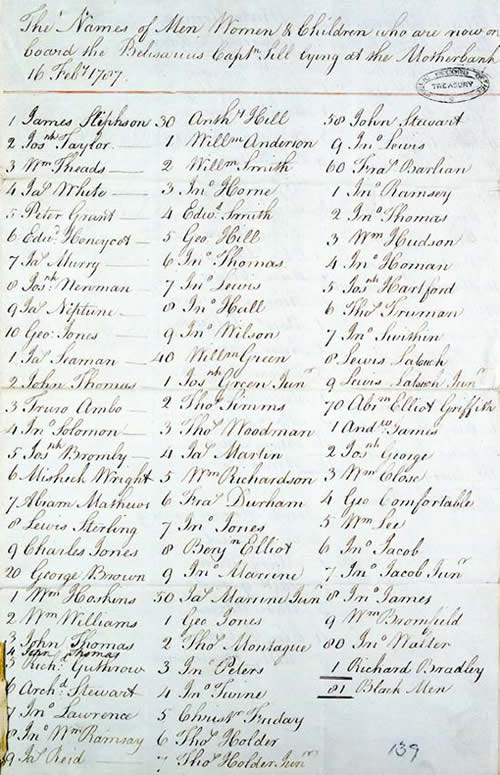 The Names of Men Women & Children who are now on
board the Belisarius Captn Sill lying at the Motherbank
16 Feby 1787.
TREASURY
1 James Stephson
2 Josph Taylor
3 Wm Theads
4 Jas White
5 Peter Grant
6 Edwd Honeycot
7 Jas Murry
8 Josph Newman
9 Jas Neptune
10 Geo: Jones
1 Jas Seaman
2 John Thomas
3 Truro Ambo
4 Jno Solomon
5 Josph Bromly
6 Mishech Wright
7 Abram Mathews
8 Lewis Sterling
9 Charles Jones
20 George Brown
1 Wm Hoskins
2 Wm Williams
3 John Thomas
4 John Thomas
5 Richd Guthrow
6 Archd Stewart
7 Jno Lawrence
8 Jno Wm Ramsay
9 Jas Reid
30 Anthy Hill
1 Willm Anderson
2 Willm Smith
3 Jno Horne
4 Edwd Smith
5 Geo: Hill
6 Jno Thomas
7 Jno Lewis
8 Jno Hall
9 Jno Wilson
40 Willm Green
1 Josph Green Junr
2 Thos Simms
3 Thos Woodman
4 Jas Martin
5 Wm Richardson
6 Fras Durham
7 Jno Jones
8 Benjn Elliot
9 Jno Marrine
50 Jas Marrine Junr
1 Geo Jones
2 Thos Montague
3 Jno Peters
4 Jno Twine
5 Christr Friday
6 Thos Holder
7 Thos Holder Junr
58 John Stewart
9 Jno Lewis
60 Fras Barlian
1 Jno Ramsey
2 Jno Thomas
3 Wm Hudson
4 Jno Homan
5 Josph Hartford
6 Thos Truman
7 Jno Swithin
8 Lewis
9 Lewis Junr
70 Abrm Elliot Griffith
1 Andw James
2 Josph George
3 Wm Close
4 Geo Comfortable
5 Wm Lee
6 Jno Jacob
7 Jno Jacob Junr
8 Jno James
9 Wm Bromfield
80 Jno Walter
1 Richard Bradley
81 Black Men
139